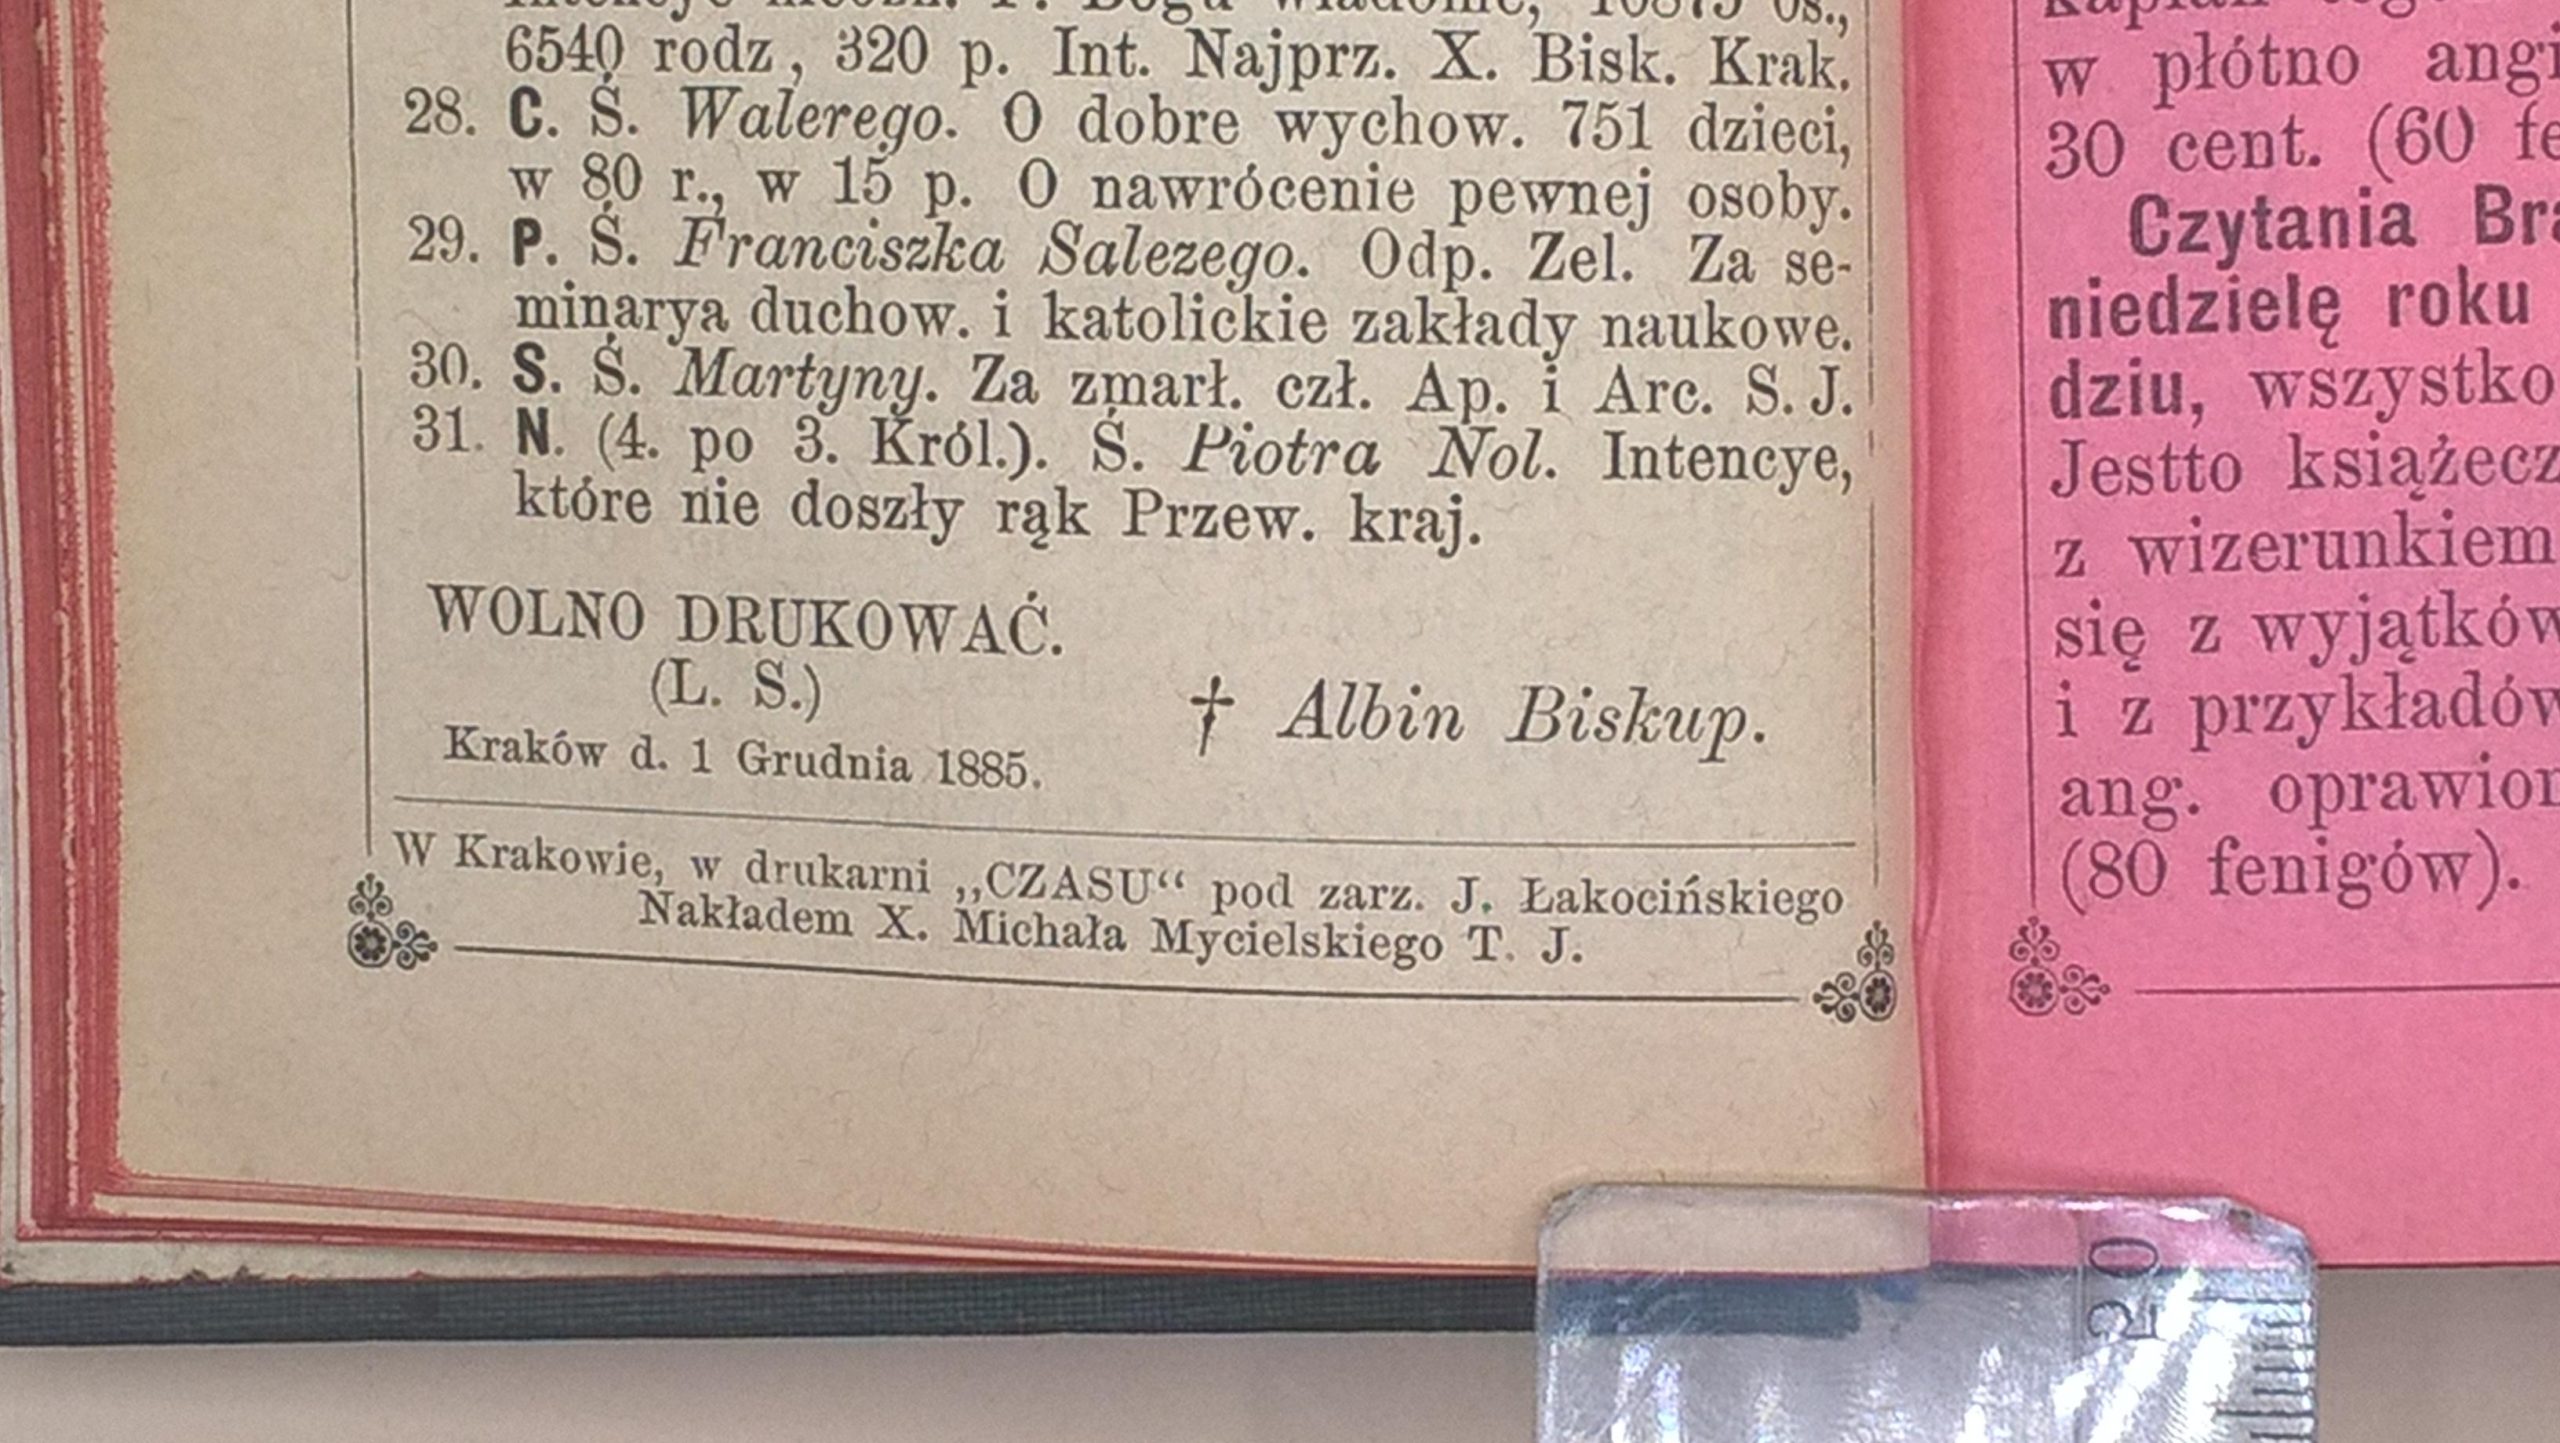 6540 rodz, 320 p. Int. Najprz. X. Bisk. Krak.
28. C. Ś. Walerego. O dobre wychow. 751 dzieci,
w 80 r., w 15 p. O nawrócenie pewnej osoby.
29. P. Ś. Franciszka Salezego. Odp. Zel. Za se-
minarya duchow. i katolickie zakłady naukowe.
30. S. Ś. Martyny. Za zmarł. czł. Ap. i Arc. S. J.
31. N. (4. po 3. Król.). Ś. Piotra Nol. Intencye,
które nie doszły rąk Przew. kraj.
WOLNO DRUKOWAĆ.
(L. S.)
† Albin Biskup.
Kraków d. 1 Grudnia 1885.
W Krakowie, w drukarni „CZASU“ pod zarz. J. Łakocińskiego
Nakładem X. Michała Mycielskiego T. J.
w płótno angi
30 cent. (60 fe
Czytania Bra
niedzielę roku
dziu, wszystko
Jestto książecz
z wizerunkiem
się z wyjątków
i z przykładów
ang. oprawion
(80 fenigów).
20